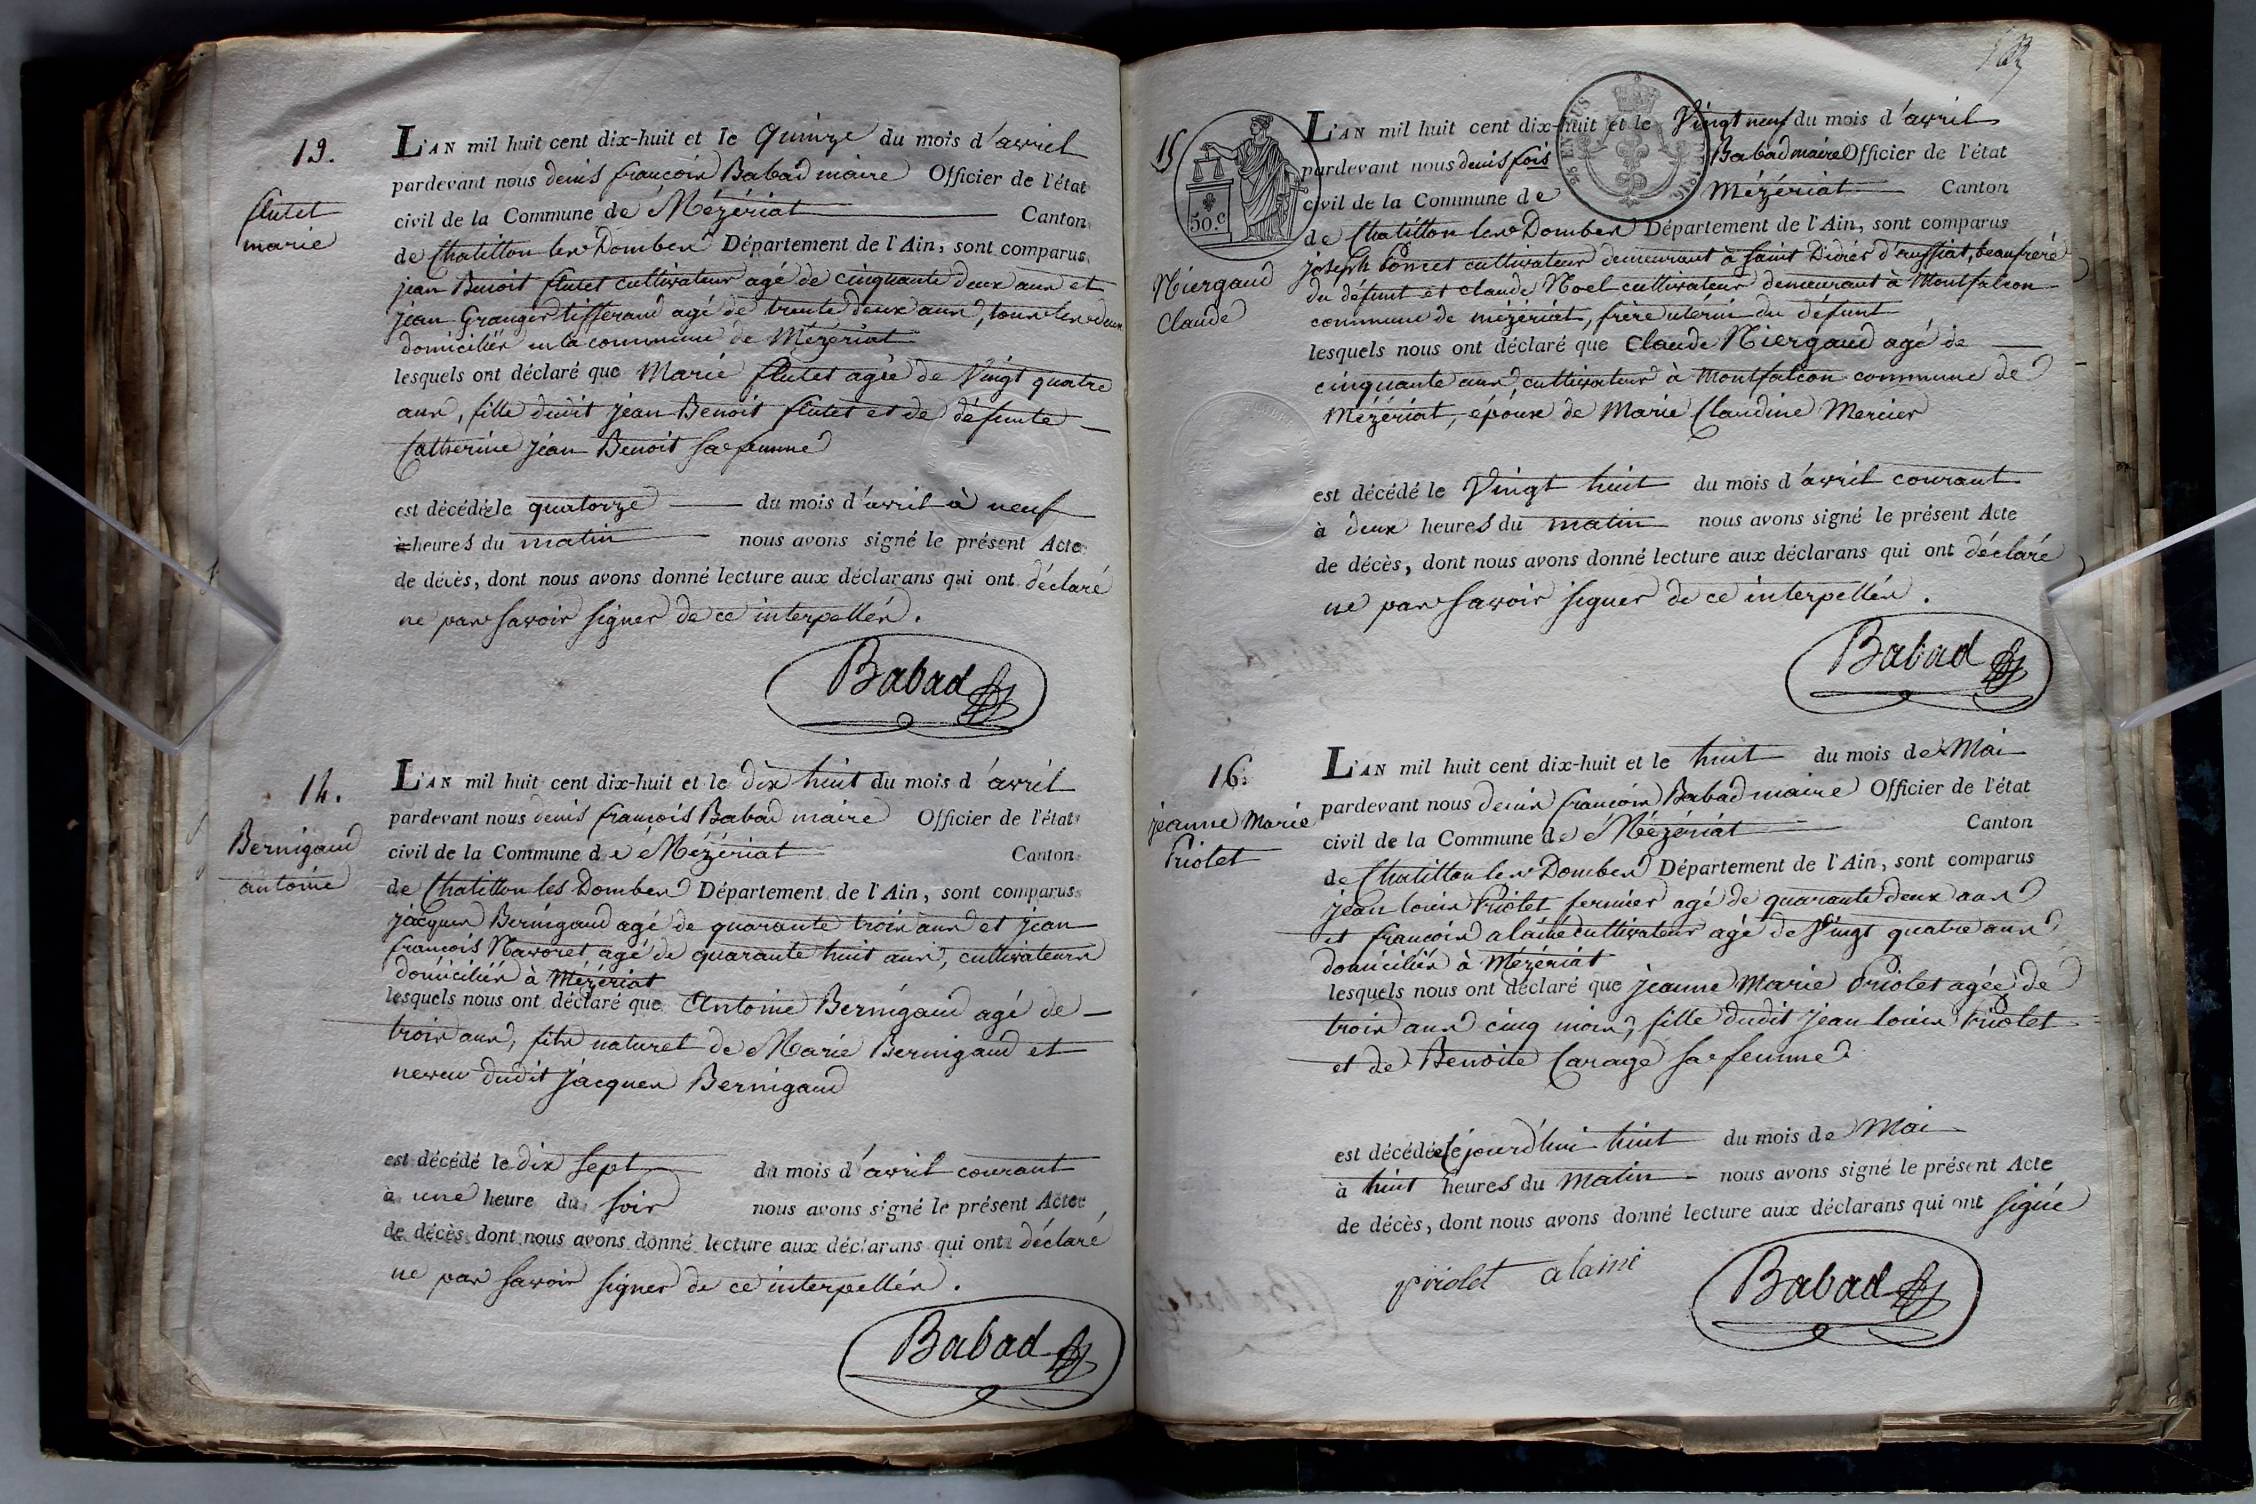 13.
flutet
marie
L'AN mil huit cent dix-huit et le Quinze du mois d'avril
pardevant nous denis françois Babad maire Officier de l'état
civil de la Commune de Mézériat Canton
de Chatillon les Dombes Département de l'Ain, sont comparus
jean Benoit flutet cultivateur agé de cinquante deux ans et
jean Granger tisserand agé de trente deux ans, tous les deux
domiciliés en la commune de Mézériat
lesquels ont déclaré que Marie flutet agée de Vingt quatre
ans, fille dudit jean Benoit flutet et de défunte
Catherine jean Benoit sa femme
est décédée le quatorze du mois d'avril à neuf
à heures du matin nous avons signé le présent Acte
de décès, dont nous avons donné lecture aux déclarans qui ont déclaré
ne pas savoir signer de ce interpellés.
Babad
14.
Bernigaud
antoine
L'AN mil huit cent dix-huit et le dix huit du mois d'avril
pardevant nous denis françois Babad maire Officier de l'état
civil de la Commune de Mézériat Canton
de Chatillon les Dombes Département de l'Ain, sont comparus
jacques Bernigaud agé de quarante trois ans et jean
françois Navoret agé de quarante huit ans, cultivateurs
domiciliés à Mézériat
lesquels nous ont déclaré que Antoine Bernigaud agé de
trois ans, fils naturel de Marie Bernigaud et
neveu dudit jacques Bernigaud
est décédé le dix sept du mois d'avril courant
à une heure du soir nous avons signé le présent Acte
de décès dont nous avons donné lecture aux déclarans qui ont déclaré
ne pas savoir signer de ce interpellés.
Babad
15
50.c
Niergaud
Claude
L'AN mil huit cent dix-huit et le Vingt neuf du mois d'avril
pardevant nous denis fois Babad maire Officier de l'état
civil de la Commune de Mézériat Canton
de Chatillon les Dombes Département de l'Ain, sont comparus
joseph poncet cultivateur demeurant à saint Didier d'aussiat, beaufrère
du défunt et claude Noel cultivateur demeurant à Montfalcon
commune de mézériat, frère utérin du défunt
lesquels nous ont déclaré que Claude Niergaud agé de
cinquante ans, cultivateur à Montfalcon commune de
Mézériat, époux de Marie Claudine Mercier
est décédé le Vingt huit du mois d'avril courant
à deux heures du matin nous avons signé le présent Acte
de décès, dont nous avons donné lecture aux déclarans qui ont déclaré
ne pas savoir signer de ce interpellés.
Babad
16.
jeanne Marie
Priolet
L'AN mil huit cent dix-huit et le huit du mois de Mai
pardevant nous denis françois Babad maire Officier de l'état
civil de la Commune de Mézériat Canton
de Chatillon les Dombes Département de l'Ain, sont comparus
jean louis Priolet fermier agé de quarante deux ans
et françois alaine cultivateur agé de Vingt quatre ans
domiciliés à Mézériat
lesquels nous ont déclaré que jeanne Marie Priolet agée de
trois ans cinq mois, fille dudit jean louis Priolet
et de Benoite Carage sa femme
est décédée cejourd'hui huit du mois de Mai
à huit heures du Matin nous avons signé le présent Acte
de décès, dont nous avons donné lecture aux déclarans qui ont signé
priolet alaine Babad